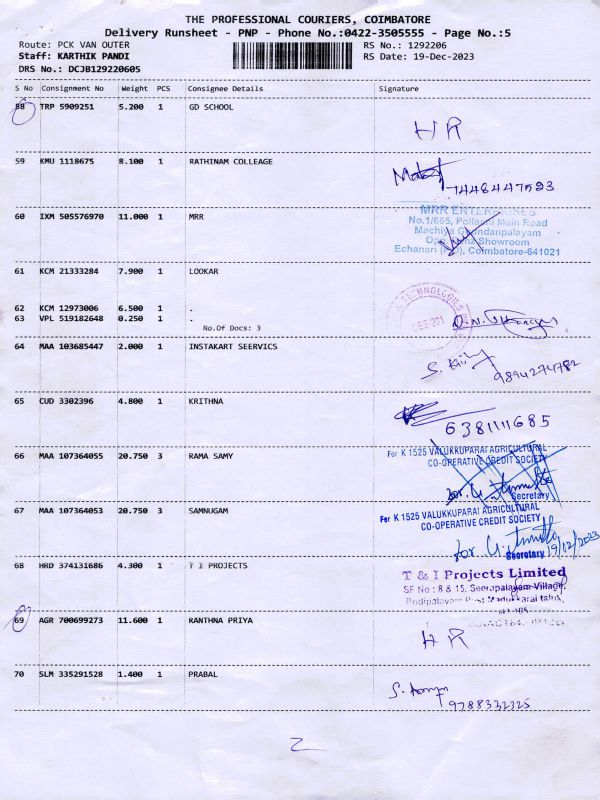 THE PROFESSIONAL COURIERS, COIMBATORE
Delivery Runsheet - PNP - Phone No.:0422-3505555 - Page No.:5
Route: PCK VAN OUTER RS No.: 1292206
Staff: KARTHIK PANDI RS Date: 19-Dec-2023
DRS No.: DCJB129220605
S No Consignment No Weight PCS Consignee Details Signature
58 TRP 5909251 5.200 1 GD SCHOOL
H R
59 KMU 1118675 8.100 1 RATHINAM COLLEAGE
7446447593
60 IXM 505576970 11.000 1 MRR
MRR ENTERPRISES
No.1/665, Pollachi Main Road
Machiya Goundanpalayam
Showroom
Echanari Coimbatore-641021
61 KCM 21333284 7.900 1 LOOKAR
62 KCM 12973006 6.500 1 .
63 VPL 519182648 0.250 1 .
No.Of Docs: 3
64 MAA 103685447 2.000 1 INSTAKART SEERVICS
9894274782
65 CUD 3302396 4.800 1 KRITHNA
6381111685
66 MAA 107364055 20.750 3 RAMA SAMY
For K 1525 VALUKKUPARAI AGRICULTURAL
CO-OPERATIVE CREDIT SOCIETY
Secretary
67 MAA 107364053 20.750 3 SAMNUGAM
For K 1525 VALUKKUPARAI AGRICULTURAL
CO-OPERATIVE CREDIT SOCIETY
Secretary 19/12/2023
68 HRD 374131686 4.300 1 T I PROJECTS
T & I Projects Limited
SF No : 8 & 15, Seerapalayam Village,
Podipalayam Post Madukkarai taluk,
69 AGR 700699273 11.600 1 RANTHNA PRIYA
H R
70 SLM 335291528 1.400 1 PRABAL
9788332325
2